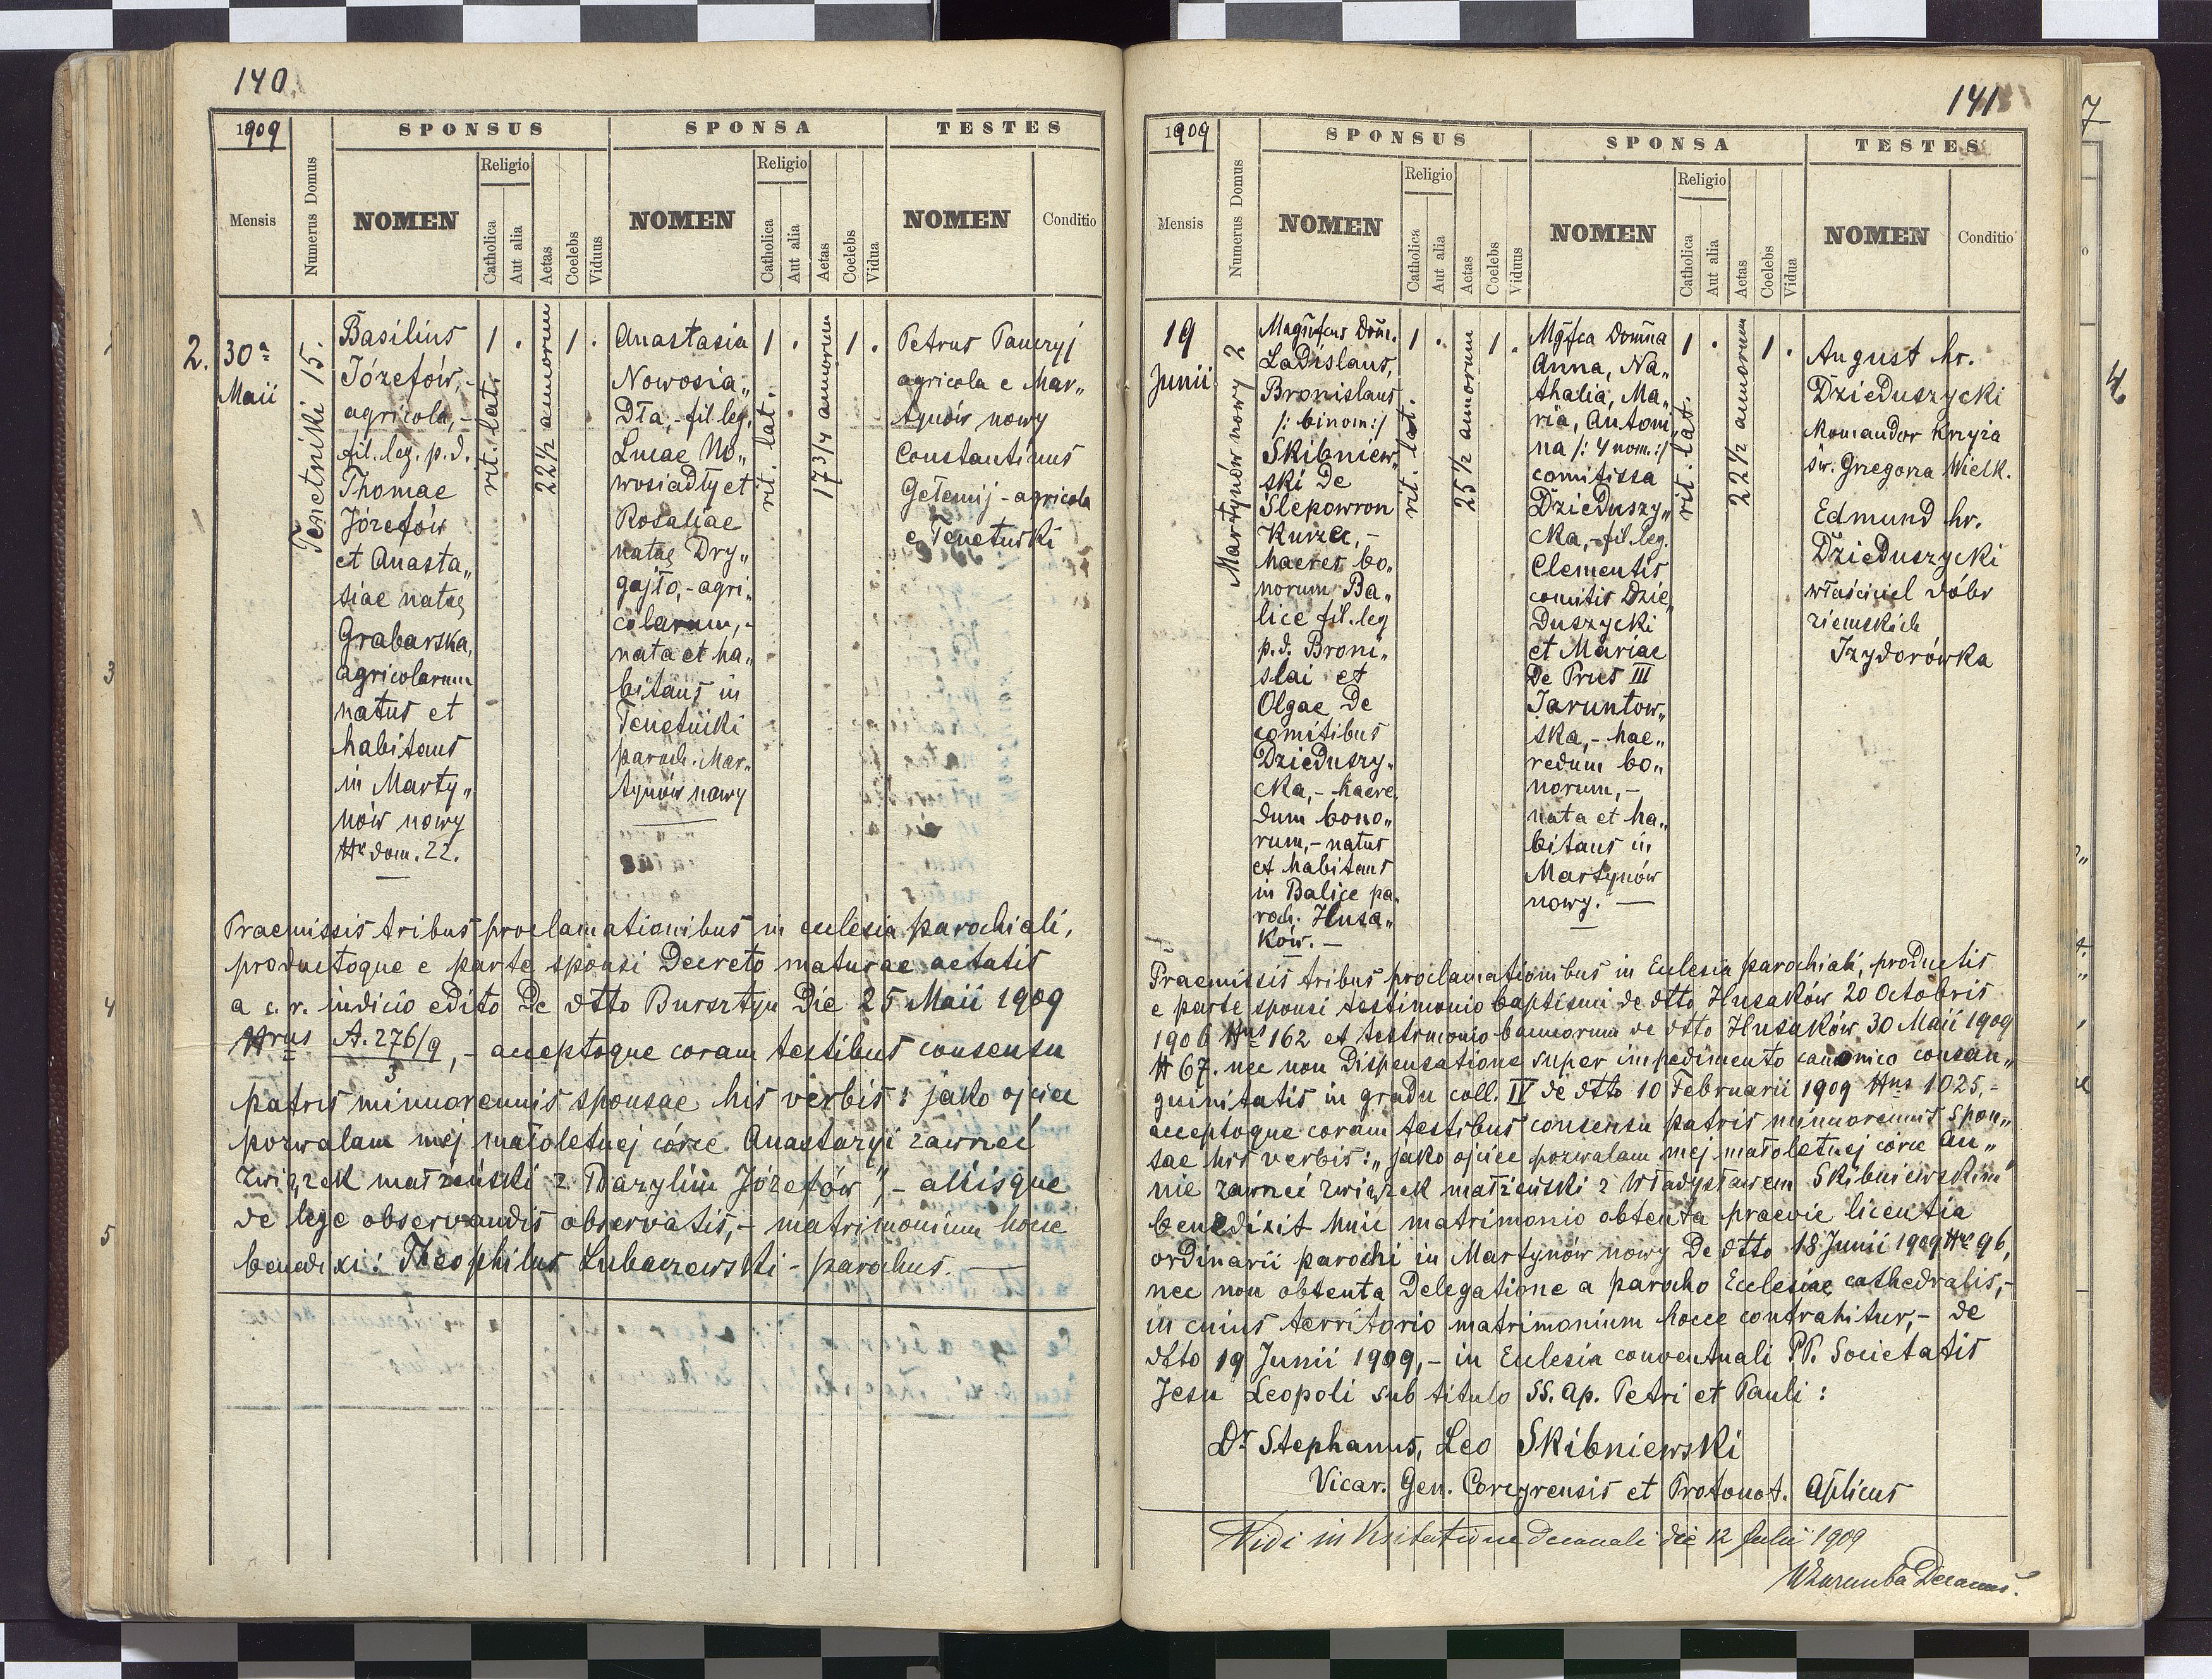 140
1909
SPONSUS
SPONSA
TESTES
Mensis
Numerus Domus
NOMEN
Religio
Catholica
Aut alia
Aetas
Coelebs
Viduus
NOMEN
Religio
Catholica
Aut alia
Aetas
Coelebs
Vidua
NOMEN
Conditio
2.
30ª
Maii
Tenetniki 15.
Basilius
Józefów,-
agricola,-
fil. leg. p. d.
Thomae
Józefów
et Anasta„
siae natae
Grabarska,
agricolarum
natus et
habitans
in Marty„
nów nowy
Nr dom. 22.
1
rit. lat.
22 1/2 annorum
1
Anastasia
Nowosia„
dła,- fil leg.
Lucae No„
wosiadły et
Rosaliae
natae Dry„
gajło,- agri„
colarum,-
nata et ha„
bitans in
Tenetniki
paroch. Mar„
tynów nowy
1
rit. lat.
17 3/4 annorum
1
Petrus
agricola e Mar„
tynów nowy
Constantinus
agricola
e Tenetniki
Praemissis tribus proclamationibus in ecclesia parochiali,
productoque e parte sponsi Decreto maturae aetatis
a c. r. iudicio edito de dtto Bursztyn die 25 Maii 1909
Nrus A. 276/9,- acceptoque coram testibus consensu
3
patris minorennis sponsae his verbis: jako ojciec
pozwalam mej małoletniej córce Anastazyi zawrzeć
związek małżeński z Bazylim Józefów",- aliisque
de lege observandis observatis,- matrimonium hocce
benedixi: Theophilus Lubaczewski - parochus.
141
1909
SPONSUS
SPONSA
TESTES
Mensis
Numerus Domus
NOMEN
Religio
Catholica
Aut alia
Aetas
Coelebs
Viduus
NOMEN
Religio
Catholica
Aut alia
Aetas
Coelebs
Vidua
NOMEN
Conditio
19
Junii
Martynów nowy 2
Magnfcus Dom.
Ladislaus,
Bronislaus
/: binom :/
Skibniew„
ski de
Ślepowron
Kurza,-
haeres bo„
norum Ba„
lice fil. leg
p. d. Broni„
slai et
Olgae de
comitibus
Dzieduszy„
cka,- haere„
dum bono„
rum,- natus
et habitans
in Balice pa„
roch. Husa„
ków.-
1
rit. lat.
25 1/2 annorum
1
Mgfca Domna
Anna, Na„
thalia, Ma„
ria, Antoni
na /: 4 nom. :/
comitissa
Dzieduszy„
cka,- fil. leg.
Clementis
comitis Dzie„
duszycki
et Mariae
de Prus III
Jaruntow„
ska,- hae„
redum bo„
norum,-
nata et ha„
bitans in
Martynów
nowy.-
1
rit. lat.
22 1/2 annorum
1
August hr.
Dzieduszycki
Komandor Krzyża
św. Grzegorza Wielk.
Edmund hr.
Dzieduszycki
właściciel dóbr
ziemskich
Izydorówka
Praemissis tribus proclamationibus in Eclesia parochiali, productis
e parte sponsi testimonio baptismi de dtto Husaków 20 Octobris
1906 Nus 162 et testimonio bannorum de dtto Husaków 30 Maii 1909
N 67. nec non Dispensatione super impedimento canonico consan„
guinitatis in gradu coll. IV de dtto 10 Februarii 1909 Nus 1025,-
acceptoque coram testibus consensu patris minorennis spon„
sae his verbis: „jako ojciec pozwalam mej małoletniej córce An„
nie zawrzeć związek małżeński z Władysławem Skibniewskim"
benedixit huic matrimonio obtenta praevie licentia
ordinarii parochi in Martynów nowy de dtto 18 Junii 1909 Nr 96,
nec non obtenta Delegatione a parocho Ecclesiae cathedralis,-
in cuius territorio matrimonium hocce contrahitur,- de
dtto 19 Junii 1909,- in Eclesia conventuali PP. Societatis
Jesu Leopoli sub titulo SS. Ap. Petri et Pauli:
Dr Stephanus, Leo Skibniewski
Vicar. Gen. Corcyrensis et Protonot. Aplicus
Vidi in Visitatione decanali die 12 Julii 1909
Decanus.
3
4
5
7
4